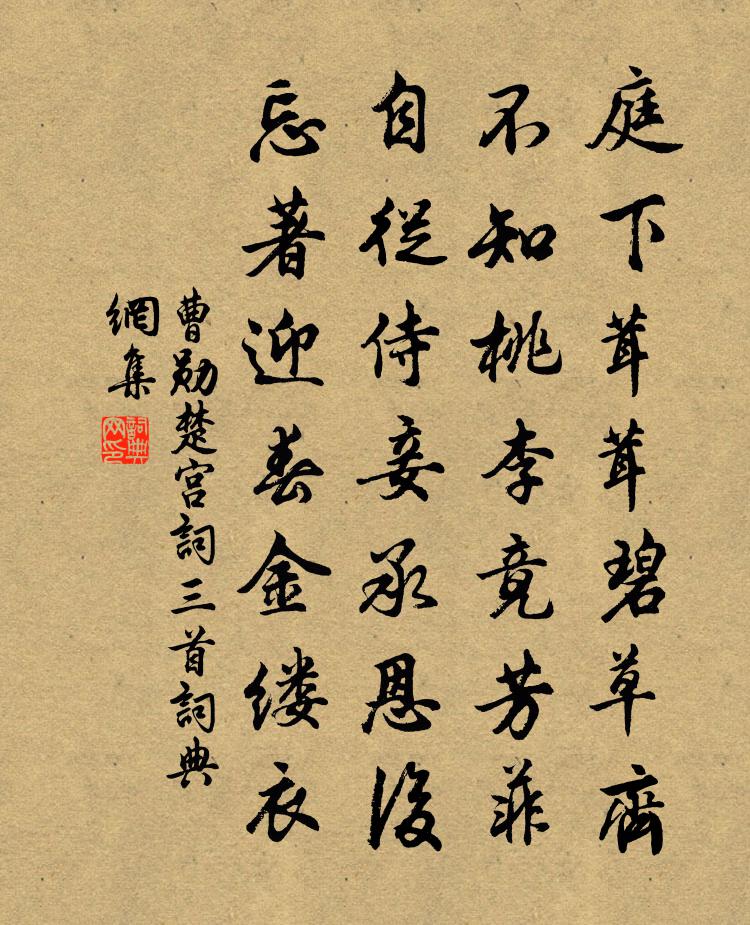 庭下茸茸碧草齊
不知桃李竟芳菲
自從侍妾承恩後
忘著迎春金缕衣
曹勛楚宫詞三首詞典
網集
詞典
网印